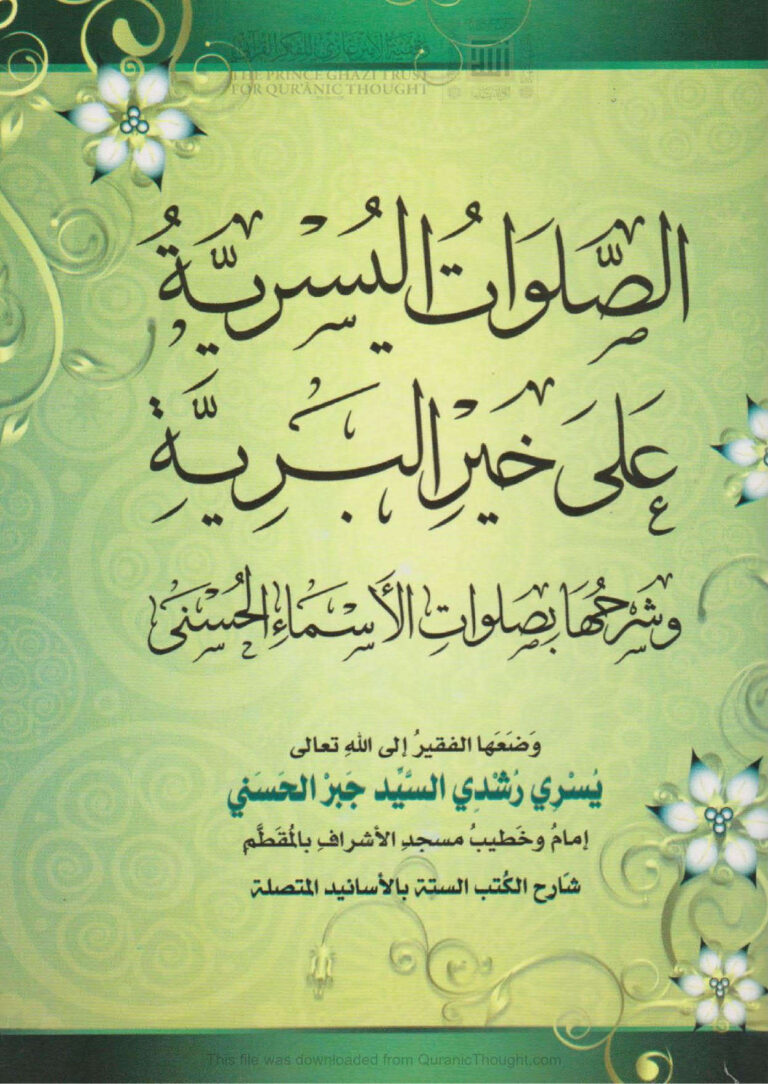 THE PRINCE GHAZI TRUST
FOR QUR'ĀNIC THOUGHT
الصَّلَوَاتُ اليُسْرِيَّةُ
عَلَى خَيْرِ البَرِيَّةِ
وَشَرْحُهَا بِصَلَوَاتِ الأَسْمَاءِ الحُسْنَى
وَضَعَها الفقيرُ إلى اللهِ تعالى
يُسْرِي رُشْدِي السَّيِّد جَبرْ الحَسَني
إمامُ وخَطيبُ مسجدِ الأشرافِ بالمُقَطَّم
شَارح الكُتب الستة بالأسانيد المتصلة
This file was downloaded from QuranicThought.com